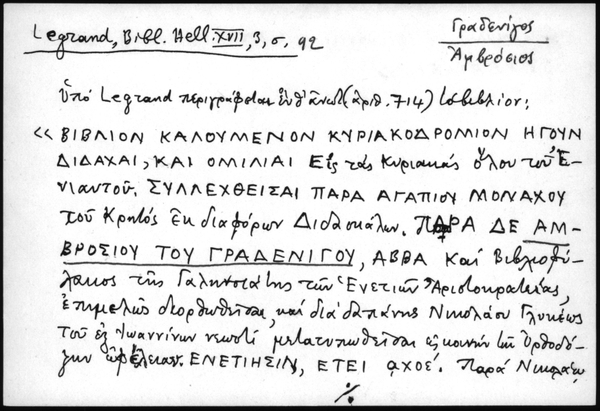 Legrand, Bibl. Hell. XVII, 3, σ. 92
Γραδενίγος
Ἀμβρόσιος
Ὑπό Legrand περιγράφεται ἐνθ' ἀνωτ. (ἀριθ. 714) τό βιβλίον:
« ΒΙΒΛΙΟΝ ΚΑΛΟΥΜΕΝΟΝ ΚΥΡΙΑΚΟΔΡΟΜΙΟΝ ΗΓΟΥΝ
ΔΙΔΑΧΑΙ, ΚΑΙ ΟΜΙΛΙΑΙ Εἰς τάς Κυριακάς ὅλου τοῦ Ἐ-
νιαυτοῦ. ΣΥΛΛΕΧΘΕΙΣΑΙ ΠΑΡΑ ΑΓΑΠΙΟΥ ΜΟΝΑΧΟΥ
τοῦ Κρητός ἐκ διαφόρων Διδασκάλων. ΠΑΡΑ ΔΕ ΑΜ-
ΒΡΟΣΙΟΥ ΤΟΥ ΓΡΑΔΕΝΙΓΟΥ, ΑΒΒΑ Καί Βιβλιοφύ-
λακος τῆς Γαληνοτάτης τῶν Ἐνετιῶν Ἀριστοκρατείας,
ἐπιμελῶς διορθωθεῖσαι, καί διά δαπάνης Νικολάου Γλυκέως
τοῦ ἐξ Ἰωαννίνων νεωστί μετατυπωθεῖσαι εἰς κοινήν τῶν Ὀρθοδό-
ξων ὠφέλειαν. ΕΝΕΤΙΗΣΙΝ, ΕΤΕΙ αχοέ. Παρά Νικολάῳ
./.